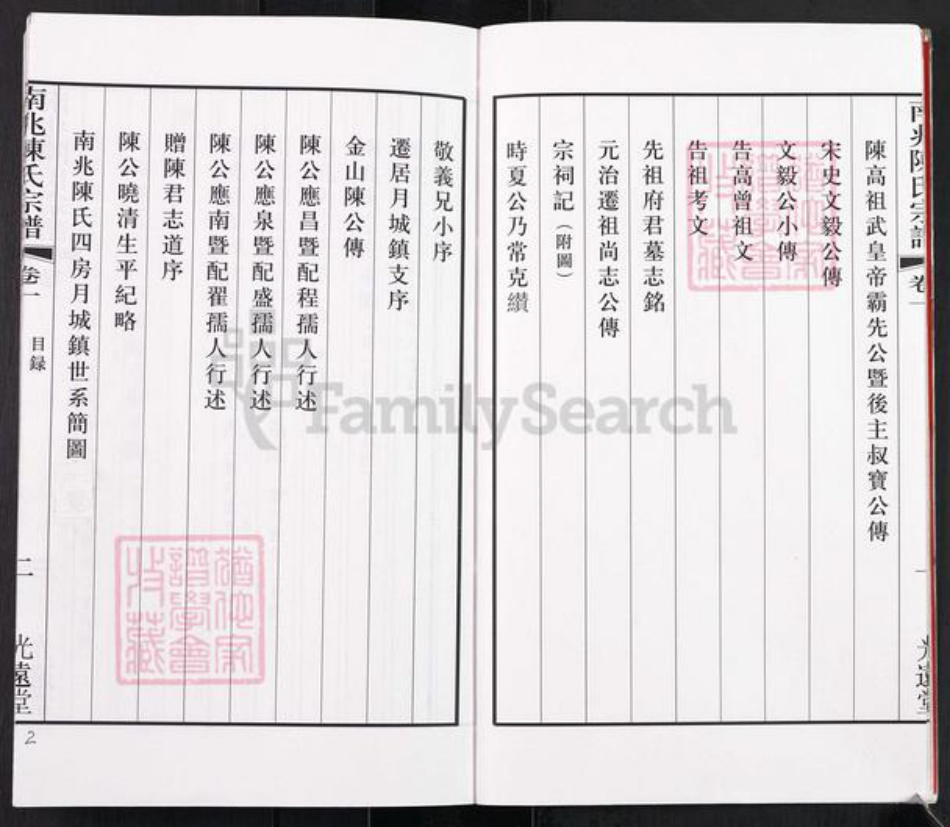 南兆陳氏宗譜 卷一
陳高祖武皇帝霸先公暨後主叔寶公傳
宋史文毅公傳
文毅公小傳
告高曾祖文
告祖考文
先祖府君墓志銘
元治遷祖尚志公傳
宗祠記（附圖）
時夏公乃常克纘
光遠堂
敬義兄小序
遷居月城鎮支序
金山陳公傳
陳公應昌暨配程孺人行述
陳公應泉暨配盛孺人行述
陳公應南暨配翟孺人行述
贈陳君志道序
陳公曉清生平紀略
南兆陳氏四房月城鎮世系簡圖
南兆陳氏宗譜 卷一 目録 二 光遠堂
2
FamilySearch